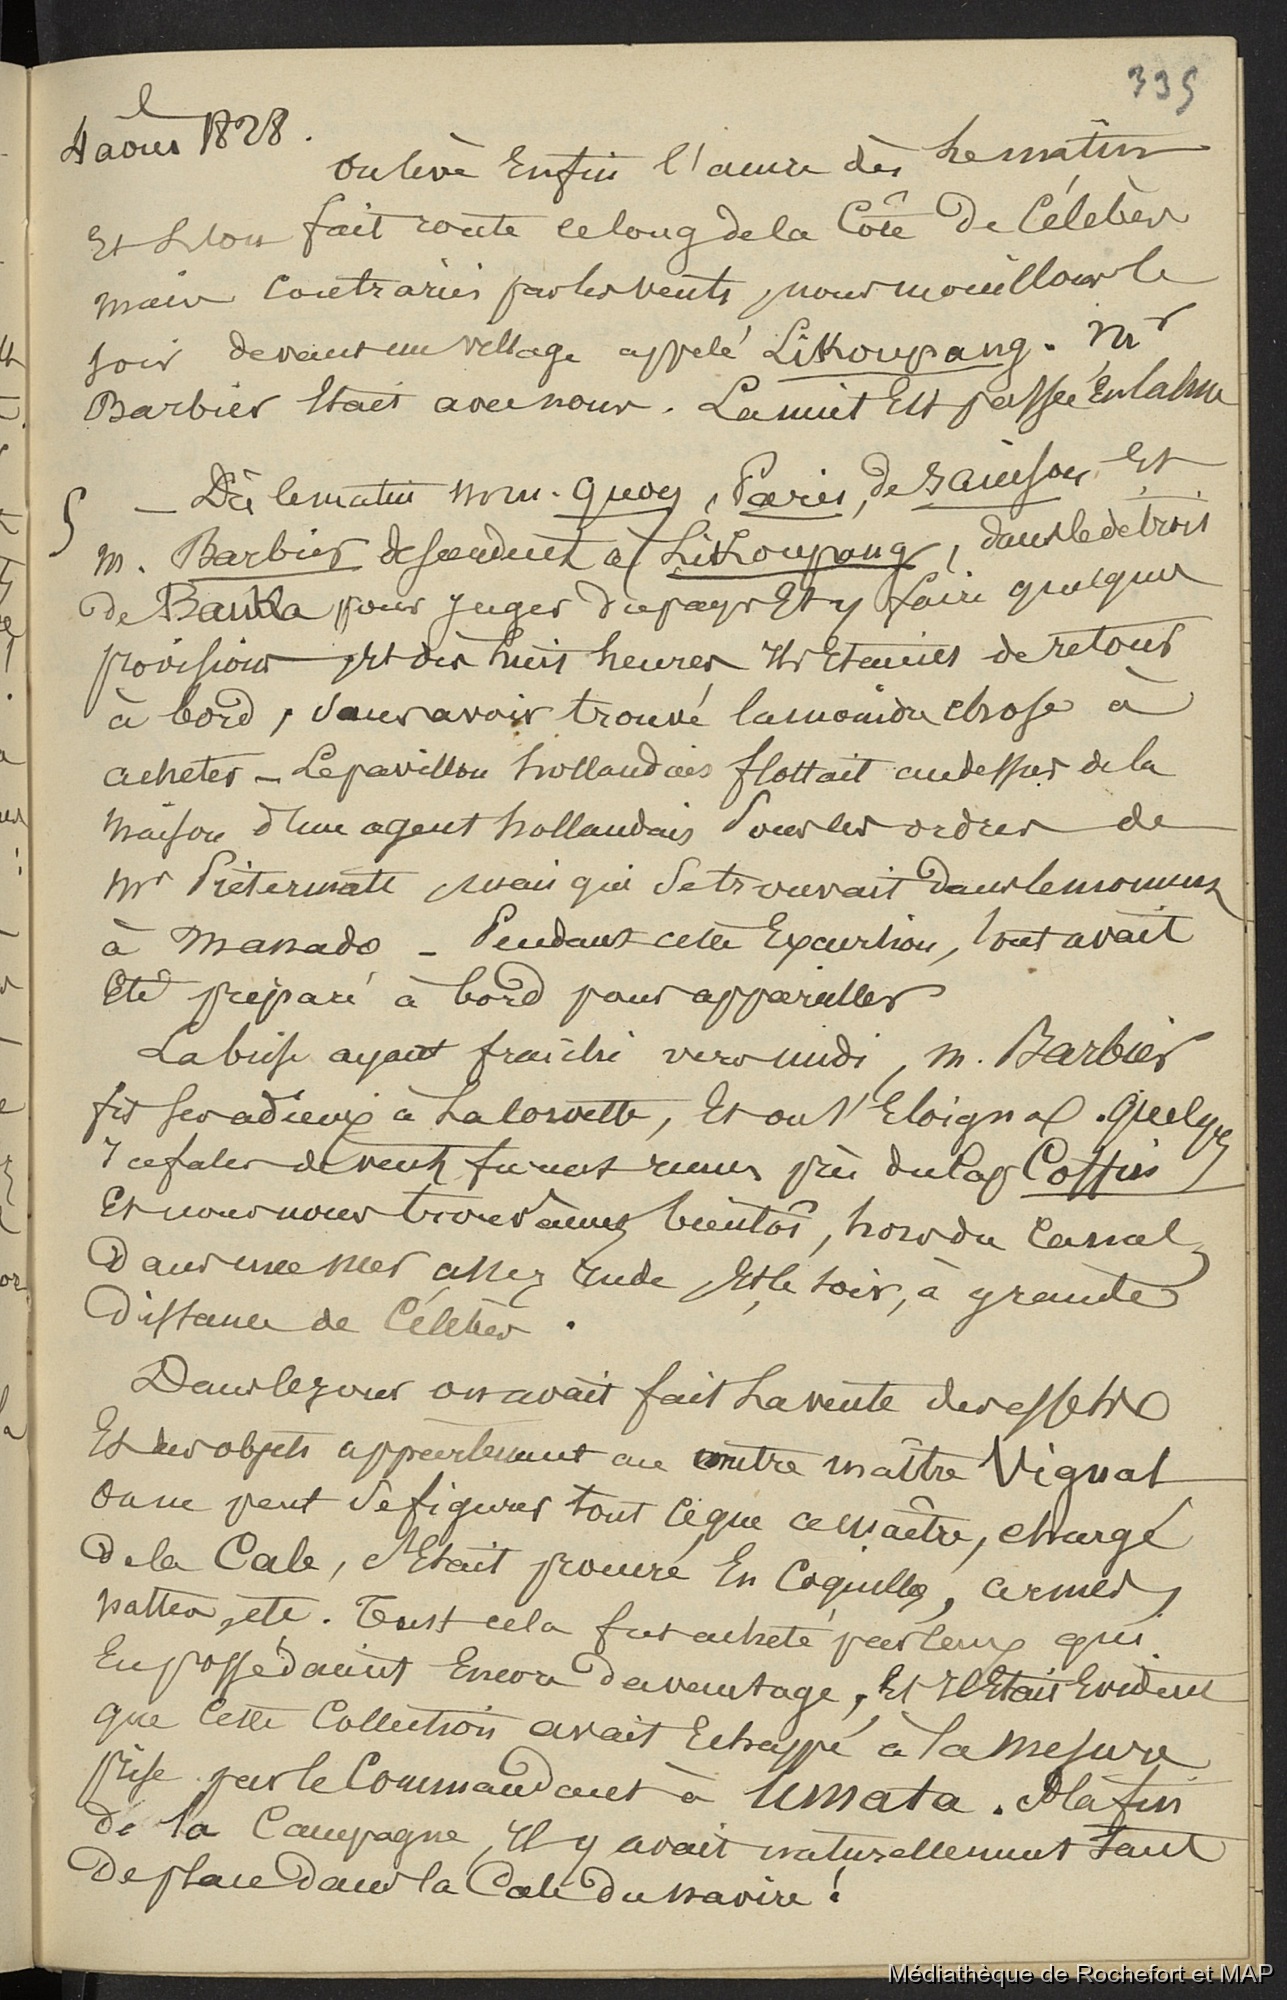 335
4 août 1828.
on lève Enfin l'ancre dès le matin
Et l'on fait route le long de la Côte De Célèbes
mais Contrariés par les vents, nous mouillons le
soir devant un village appelé Likoupang. Mr
Barbier Etait avec nous. La nuit Est passée En calme
5 — Dès le matin mm. Quoy, Paris, de Sainson Et
m. Barbier descendent à Likoupang, dans le détroit
de Banka pour juger du pays Et y faire quelques
provisions, Et dès huit heures Ils Etaient de retour
à bord, sans avoir trouvé la moindre chose à
acheter — Le pavillon hollandais flottait au dessus de la
maison d'un agent hollandais sous les ordres de
Mr Pietermatt, mais qui se trouvait dans le moment
à Manado — Pendant cette Excursion, tout avait
Eté préparé à bord pour appareiller
La brise ayant fraîchi vers midi, m. Barbier
fit ses adieux à La Corvette, Et on s'Eloigna. Quelqes
rafales de vent furent reçues près du Cap Coffin
Et nous nous trouvâmes bientôt, hors du Canal,
Dans une mer assez rude, Et le soir, à grande
Distance de Célèbes.
Dans le jour on avait fait La vente des effets
Et des objets appartenant au contre maître Vignal
on ne peut se figurer tout ce que ce maître, chargé
de la Cale, s'Etait procuré En Coquilles, armes,
nattes, etc. Tout cela fut acheté par ceux qui
En possédaient Encore davantage, Et Il Etait Evident
que Cette Collection avait Echappé à la mesure
prise par le Commandant à Umata. A la fin
de la Campagne, Il y avait naturellement tant
De place Dans la Cale Du navire!
Médiathèque de Rochefort et MAP